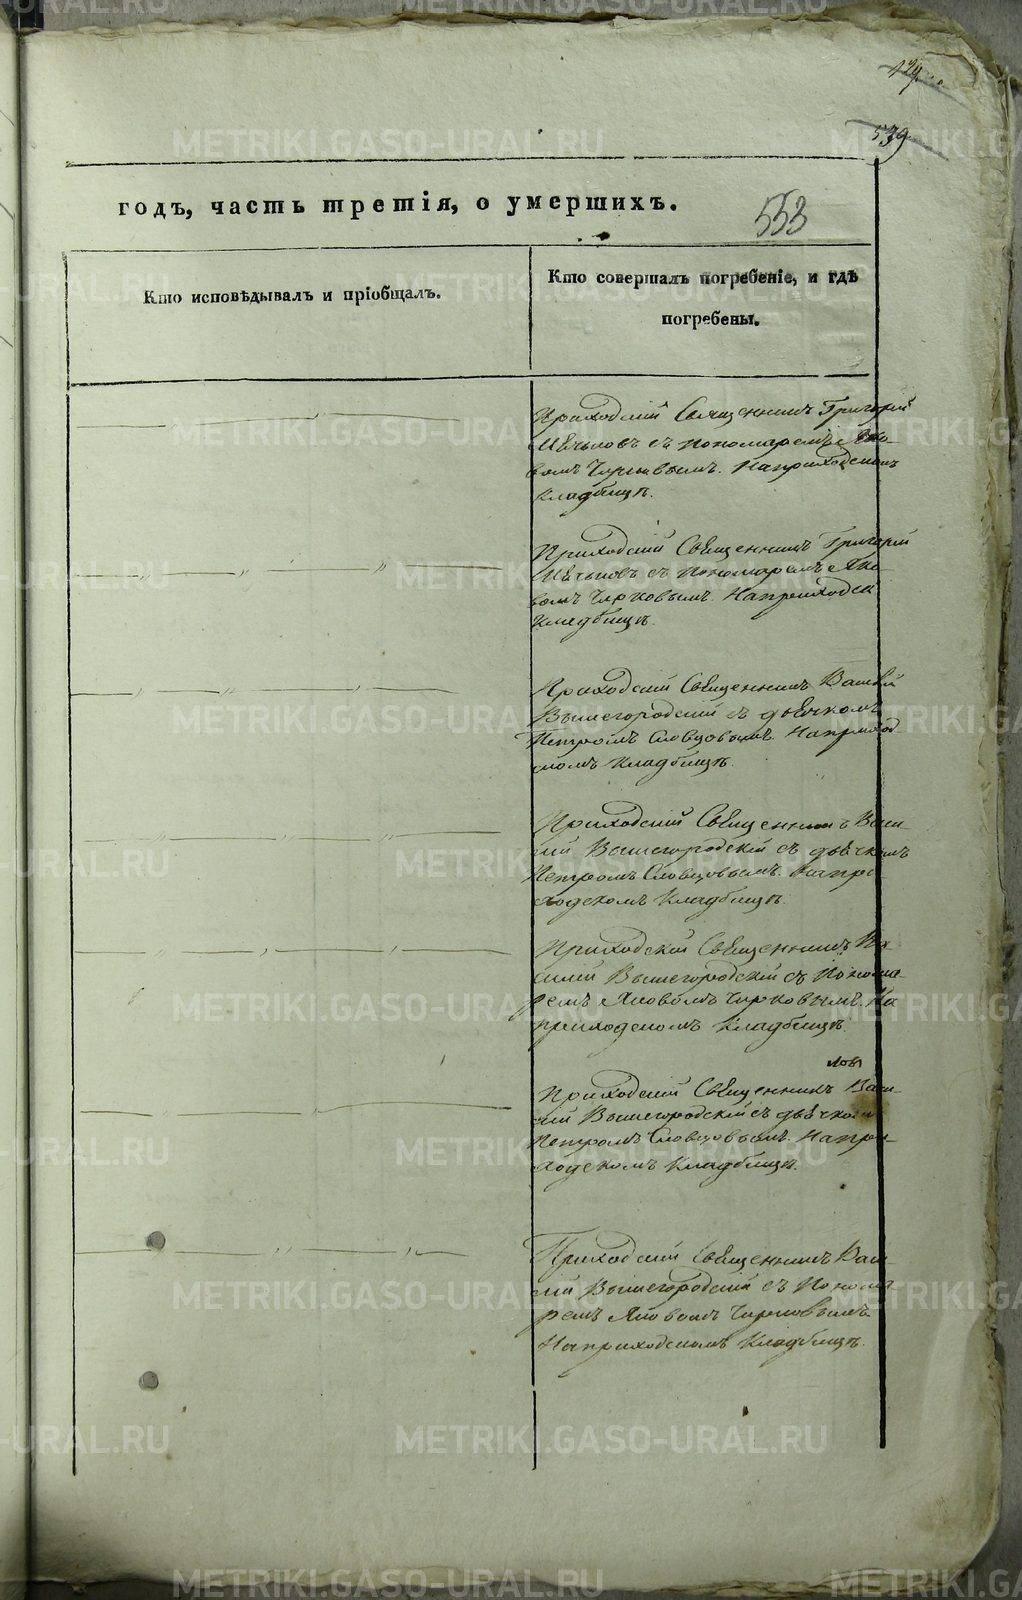 539
годъ, часть третія, о умершихъ.
553
Кто исповѣдывалъ и пріобщалъ.
Кто совершалъ погребеніе, и гдѣ
погребены.
Приходскій Священникъ Григорій
съ пономаремъ Яко-
вомъ Чирковымъ. На приходскомъ
Кладбищѣ.
Приходскій Священникъ Григорій
съ пономаремъ Яко-
вомъ Чирковымъ. На приходском
Кладбищѣ.
Приходскій Священникъ Василій
Вышегородскій съ дьячкомъ
Петромъ Словцовымъ. На приход
скомъ Кладбищѣ.
Приходскій Священникъ Васи-
лій Вышегородскій съ дьячкомъ
Петромъ Словцовымъ. На при-
ходскомъ Кладбищѣ.
Приходскій Священникъ Ва
силій Вышегородскій съ Понома-
ремъ Яковомъ Чирковымъ. На
приходскомъ Кладбищѣ.
Приходскій Священникъ Васи-
лій Вышегородскій съ дьячкомъ
Петромъ Словцовымъ. На при-
ходскомъ Кладбищѣ.
Приходскій Священникъ Васи
лій Вышегородскій съ Понома
ремъ Яковомъ Чирковымъ.
На приходскомъ Кладбищѣ.
METRIKI.GASO-URAL.RU